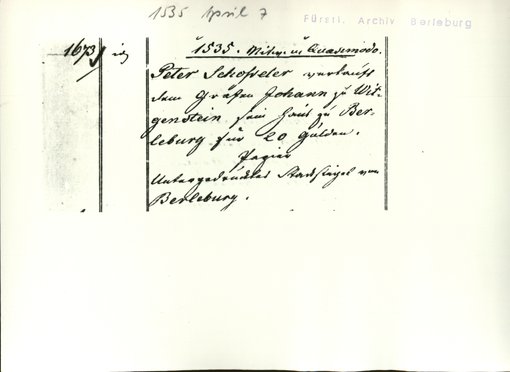 1535 April 7
Fürstl. Archiv Berleburg
1673
1535. Mitw. n. Quasimodo.
Peter Schoßeler verkauft
dem Grafen Johann zu Wit-
genstein sein Haus zu Ber-
leburg für 20 Gulden.
Papier
Untergedrucktes Stadtsiegel von
Berleburg.